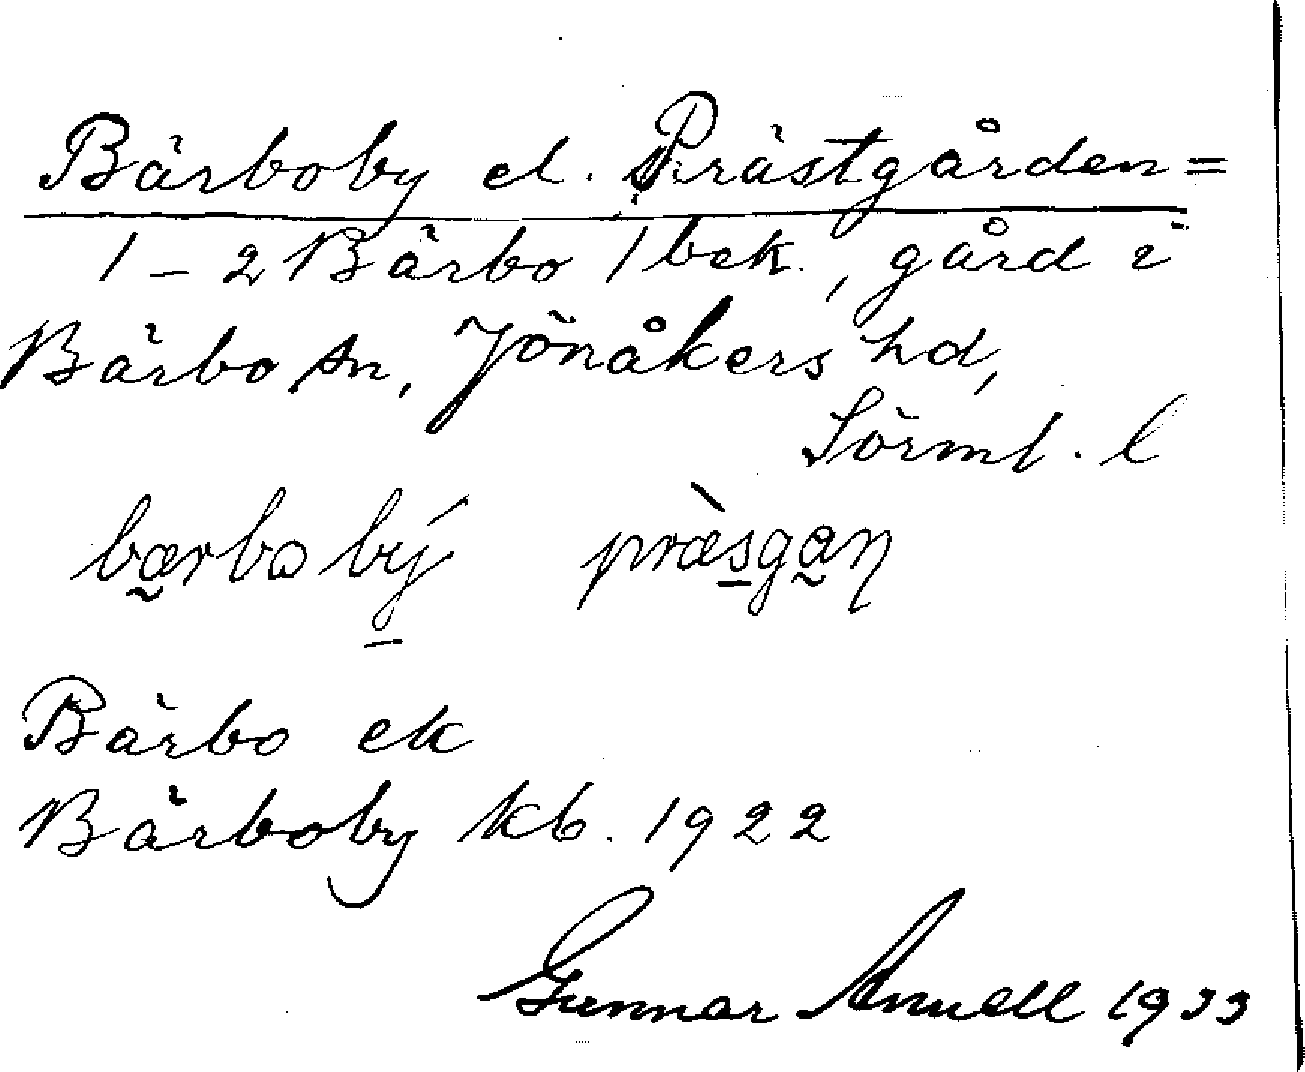 Bärboby el. Prästgården =
1 – 2 Bärbo 1 bek., gård i
Bärbo sn, Jönåkers hd,
Sörml. l
bærbobý præ̀sgaɳ
Bärbo ek
Bärboby kb. 1922
Gunnar Annell 1933